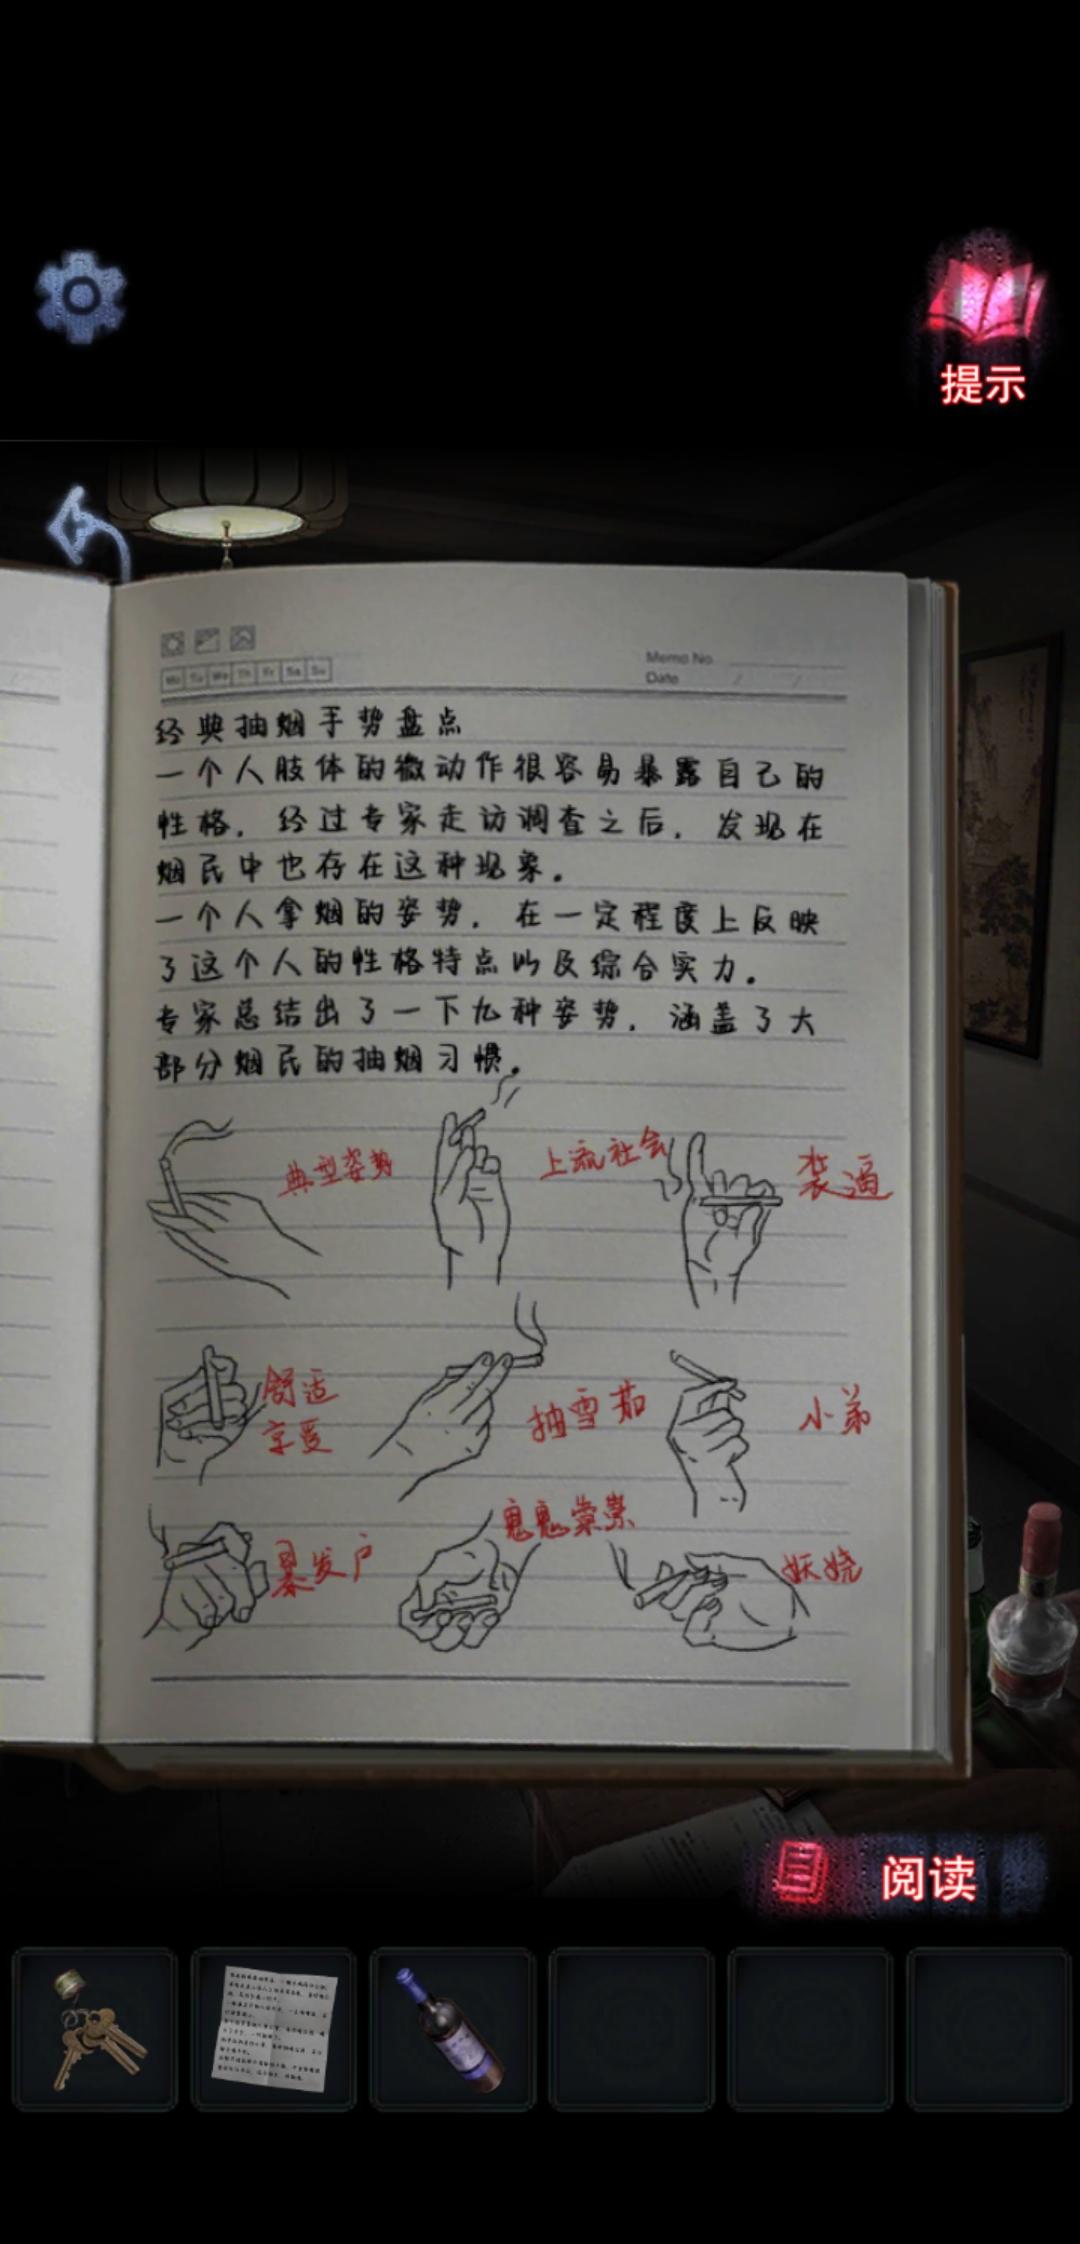 提示
Memo No
Date / /
Mo Tu We Th Fr Sa Su
经典抽烟手势盘点
一个人肢体的微动作很容易暴露自己的
性格，经过专家走访调查之后，发现在
烟民中也存在这种现象。
一个人拿烟的姿势，在一定程度上反映
了这个人的性格特点以及综合实力。
专家总结出了一下九种姿势，涵盖了大
部分烟民的抽烟习惯。
典型姿势
上流社会
装逼
舒适
享受
抽雪茄
小弟
暴发户
鬼鬼祟祟
妖娆
阅读